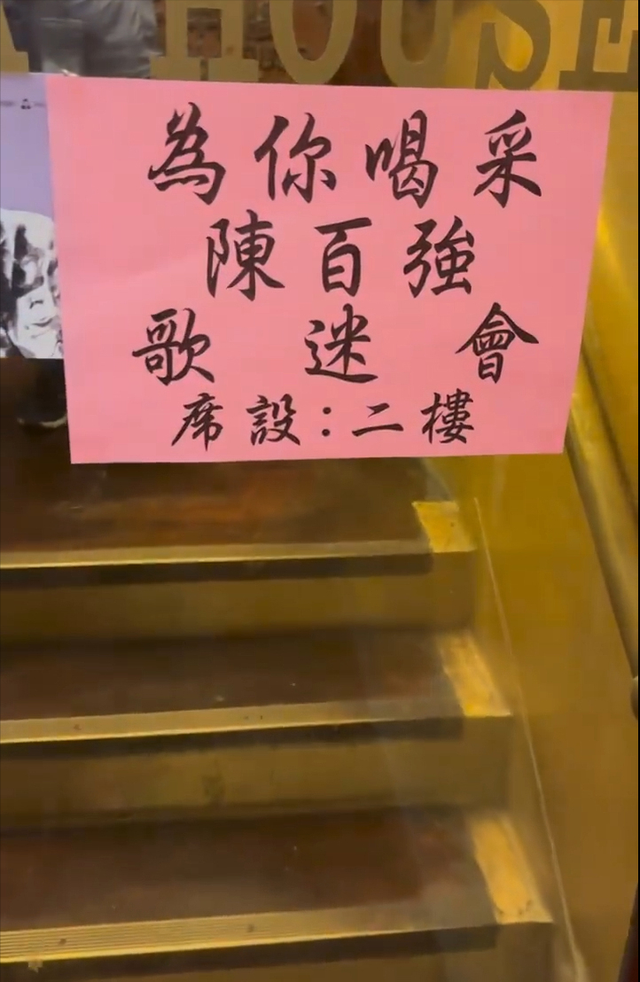 HOUSE
為你喝采
陳百強
歌迷會
席設：二樓